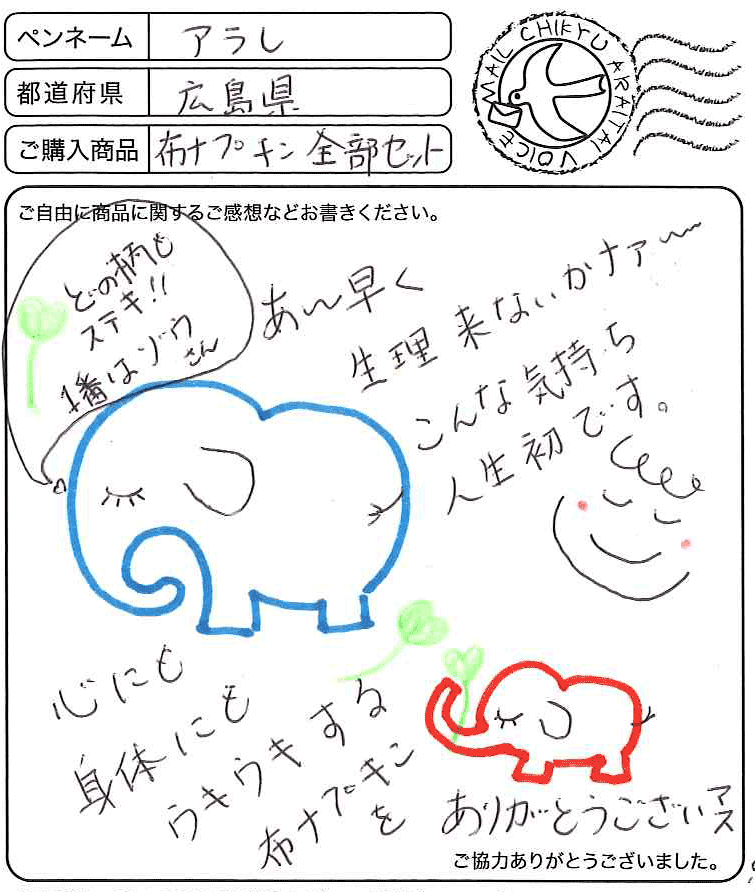 ペンネーム アラし
都道府県 広島県
ご購入商品 布ナプキン全部セット
MAIL CHIKYU ARAITAI VOICE
ご自由に商品に関するご感想などお書きください。
どの柄も
ステキ!!
1番はゾウ
さん
あ〜早く
生理来ないかナァ〜
こんな気持ち
人生初です。
心にも
身体にも
ウキウキする
布ナプキン
を
ありがとうございマス
ご協力ありがとうございました。